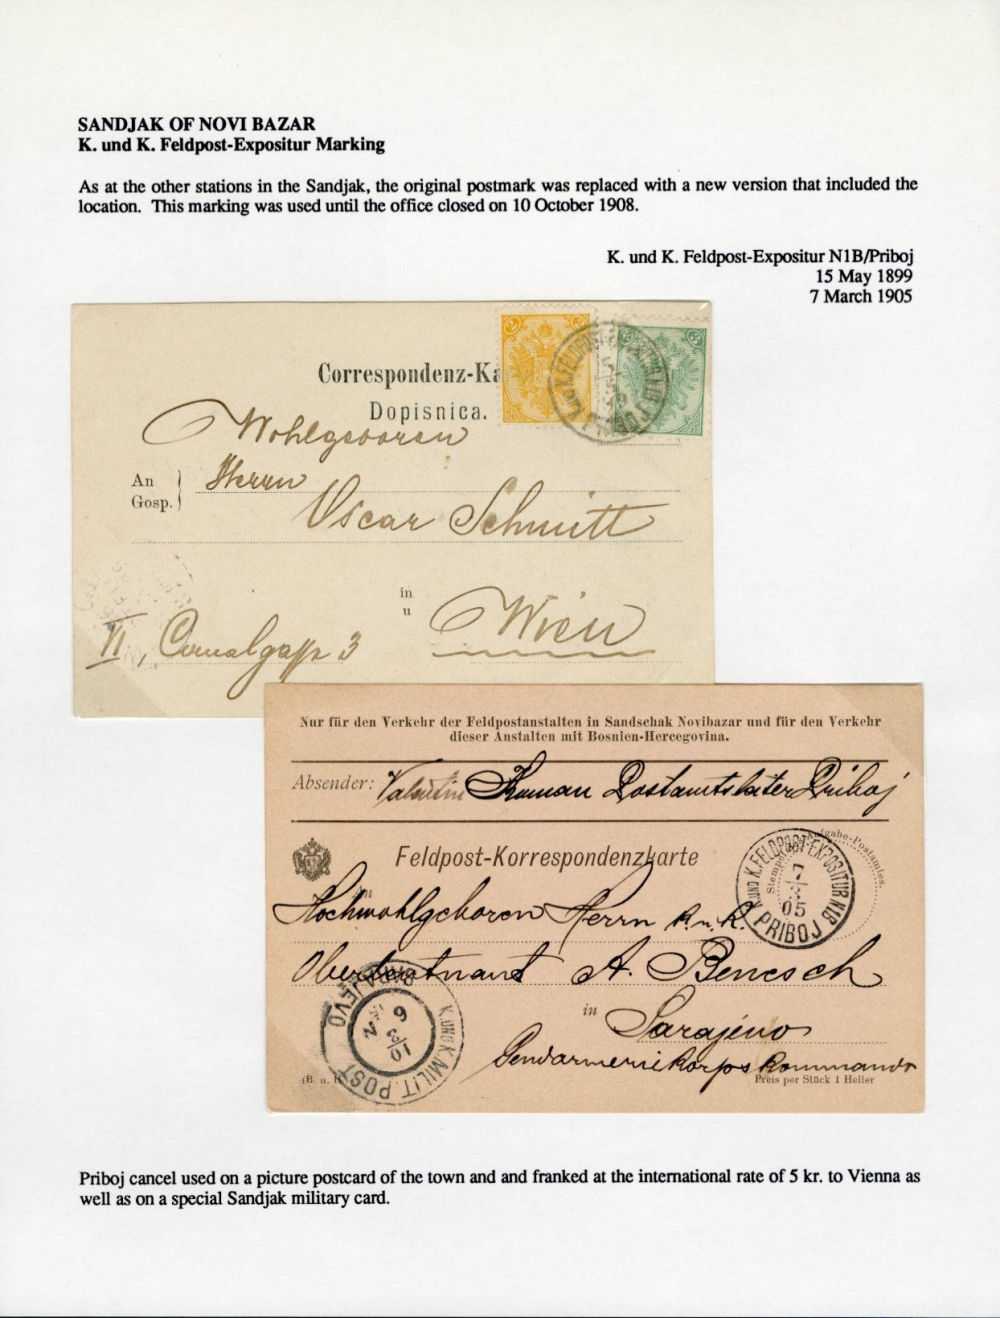 SANDJAK OF NOVI BAZAR
K. und K. Feldpost-Expositur Marking
As at the other stations in the Sandjak, the original postmark was replaced with a new version that included the
location. This marking was used until the office closed on 10 October 1908.
K. und K. Feldpost-Expositur N1B/Priboj
15 May 1899
7 March 1905
Correspondenz-Ka
Dopisnica.
2
3
Wohlgeboren
An
Gosp.
Herrn
Oscar Schmitt
in
u
Wien
VI, 3
Nur für den Verkehr der Feldpostanstalten in Sandschak Novibazar und für den Verkehr
dieser Anstalten mit Bosnien-Hercegovina.
Absender: Valentin Postamtsleiter Priboj
Feldpost-Korrespondenzkarte
Aufgabe-Postamtes.
Stempel
K. UND K. FELDPOST-EXPOSITUR N1B
7
3
05
PRIBOJ
Hochwohlgeboren Herrn k. u. k.
Oberleutnant A. Benesch
in Sarajevo
Gendarmeriekorps Kommando
K. UND K. MILIT. POST
SARAJEVO
10
3
(B. u. H.)
Preis per Stück 1 Heller
Priboj cancel used on a picture postcard of the town and and franked at the international rate of 5 kr. to Vienna as
well as on a special Sandjak military card.